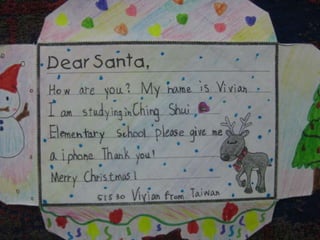 Dear Santa,
How are you? My name is Vivian
I am studying in Ching Shui
Elementary school please give me
a iphone Thank you!
Merry Christmas!
51530 Vivian from Taiwan